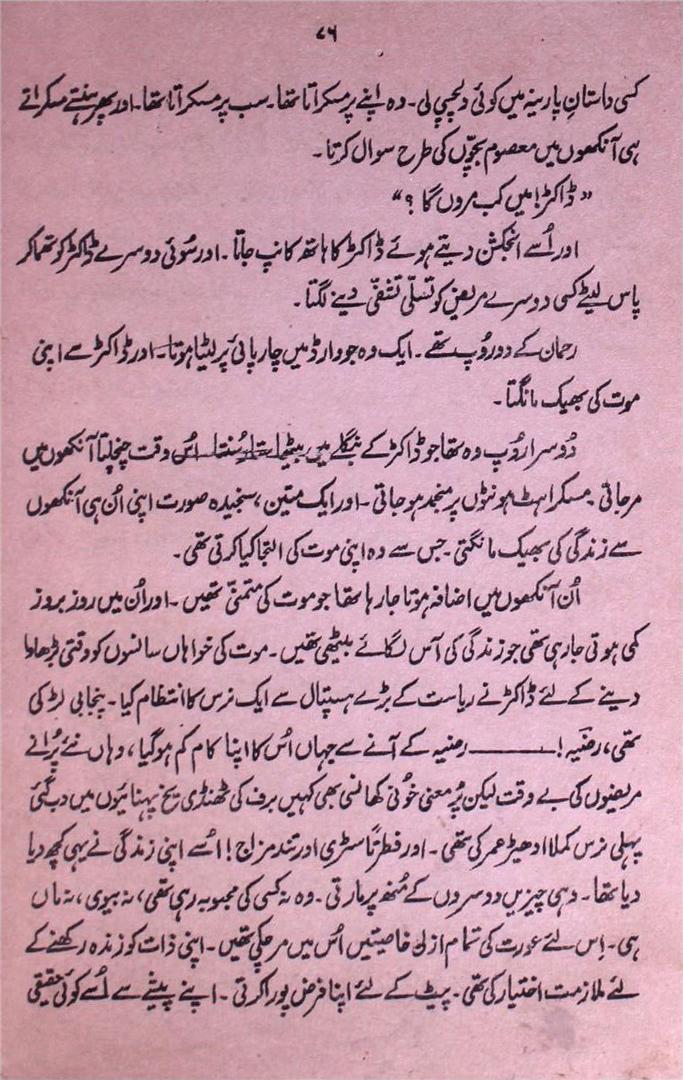 ۷۶
کسی داستانِ پارینہ میں کوئی دلچسپی لی۔ وہ اپنے پر مسکراتا تھا۔ سب پر مسکراتا تھا۔ اور پھر ہنستے مسکراتے
ہی آنکھوں میں معصوم بچّوں کی طرح سوال کرتا۔
”ڈاکٹر! میں کب مروں گا؟“
اور اُسے انجکشن دیتے ہوئے ڈاکٹر کا ہاتھ کانپ جاتا۔ اور سُوئی دوسرے ڈاکٹر کو تھما کر
پاس لیٹے کسی دوسرے مریض کو تسلّی تشفّی دینے لگتا۔
رحمان کے دو روُپ تھے۔ ایک وہ جو وارڈ میں چارپائی پر لیٹا ہوتا۔ اور ڈاکٹر سے اپنی
موت کی بھیک مانگتا۔
دُوسرا روُپ وہ تھا جو ڈاکٹر کے بنگلے میں بیٹھا ستار سُنتا۔ اُس وقت چنچلتا آنکھوں میں
مر جاتی۔ مسکراہٹ ہونٹوں پر منجمد ہو جاتی۔ اور ایک متین، سنجیدہ صورت اپنی اُن ہی آنکھوں
سے زندگی کی بھیک مانگتی۔ جس سے وہ اپنی موت کی التجا کیا کرتی تھی۔
اُن آنکھوں میں اضافہ ہوتا جا رہا تھا جو موت کی متمنّی تھیں۔ اور اُن میں روز بروز
کمی ہوتی جا رہی تھی جو زندگی کی آس لگائے بیٹھی تھیں۔ موت کی خواہاں سانسوں کو وقتی بڑھاوا
دینے کے لئے ڈاکٹر نے ریاست کے بڑے ہسپتال سے ایک نرس کا انتظام کیا۔ پنجابی لڑکی
تھی، رضیہ! ——— رضیہ کے آنے سے جہاں اُس کا اپنا کام کم ہو گیا، وہاں نئے پُرانے
مریضوں کی بے وقت لیکن پُر معنی خُونی کھانسی بھی کہیں برف کی ٹھنڈی یخ پہنائیوں میں دب گئی
پہلی نرس کملا ادھیڑ عمر کی تھی۔ اور فطرتاً سٹری اور تند مزاج! اُسے اپنی زندگی نے یہی کچھ دیا
دیا تھا۔ وہی چیزیں دوسروں کے مُنھ پر مارتی۔ وہ نہ کسی کی محبوبہ رہی تھی، نہ بیوی، نہ ماں
ہی۔ اِس لئے عورت کی تمام ازلی خاصیتیں اُس میں مر چکی تھیں۔ اپنی ذات کو زندہ رکھنے کے
لئے ملازمت اختیار کی تھی۔ پیٹ کے لئے اپنا فرض پورا کرتی۔ اپنے پیشے سے اُسے کوئی حقیقی